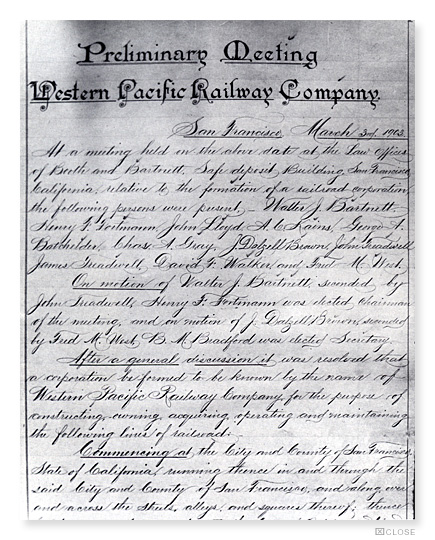 Preliminary Meeting
Western Pacific Railway Company.
San Francisco, March 3rd, 1903.
At a meeting held on the above date at the Law Offices
of Booth and Bartnett, Safe deposit Building, San Francisco,
California, relative to the formation of a railroad corporation,
the following persons were present, Walter J. Bartnett,
Henry F. Fortmann, John Lloyd, A. C. Kains, George A.
Batchelder, Chas. A. Gray, J. Dalzell Brown, John Treadwell,
James Treadwell, David F. Walker, and Fred M. West.
On motion of Walter J. Bartnett, seconded by
John Treadwell, Henry F. Fortmann was elected Chairman
of the meeting, and on motion of J. Dalzell Brown, seconded
by Fred M. West, B. M. Bradford was elected Secretary.
After a general discussion it was resolved that
a corporation be formed to be known by the name of
Western Pacific Railway Company, for the purpose of
constructing, owning, acquiring, operating and maintaining
the following lines of railroad:
Commencing at the City and County of San Francisco,
State of California, running thence in and through the
said City and County of San Francisco, and along, over
and across the streets, alleys, and squares thereof; thence
CLOSE